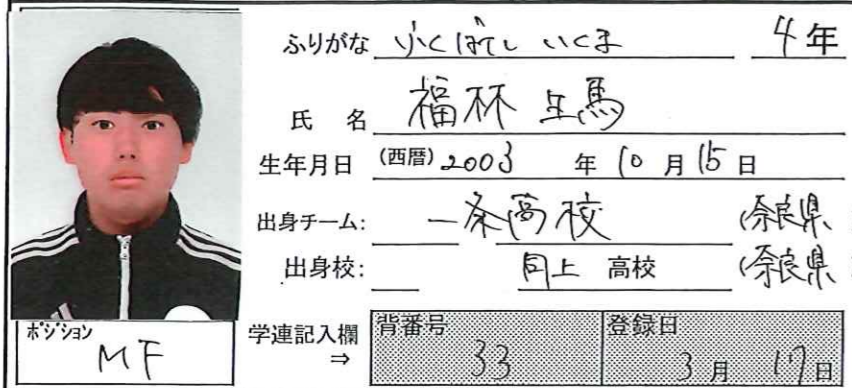 ふりがな ふくばやし いくま 4年
氏名 福林 生馬
生年月日 (西暦) 2003 年 10 月 15 日
出身チーム: 一条高校 (奈良県
出身校: 同上 高校 (奈良県
ポジション MF
学連記入欄 ⇒ 背番号 33 登録日 3月 17日